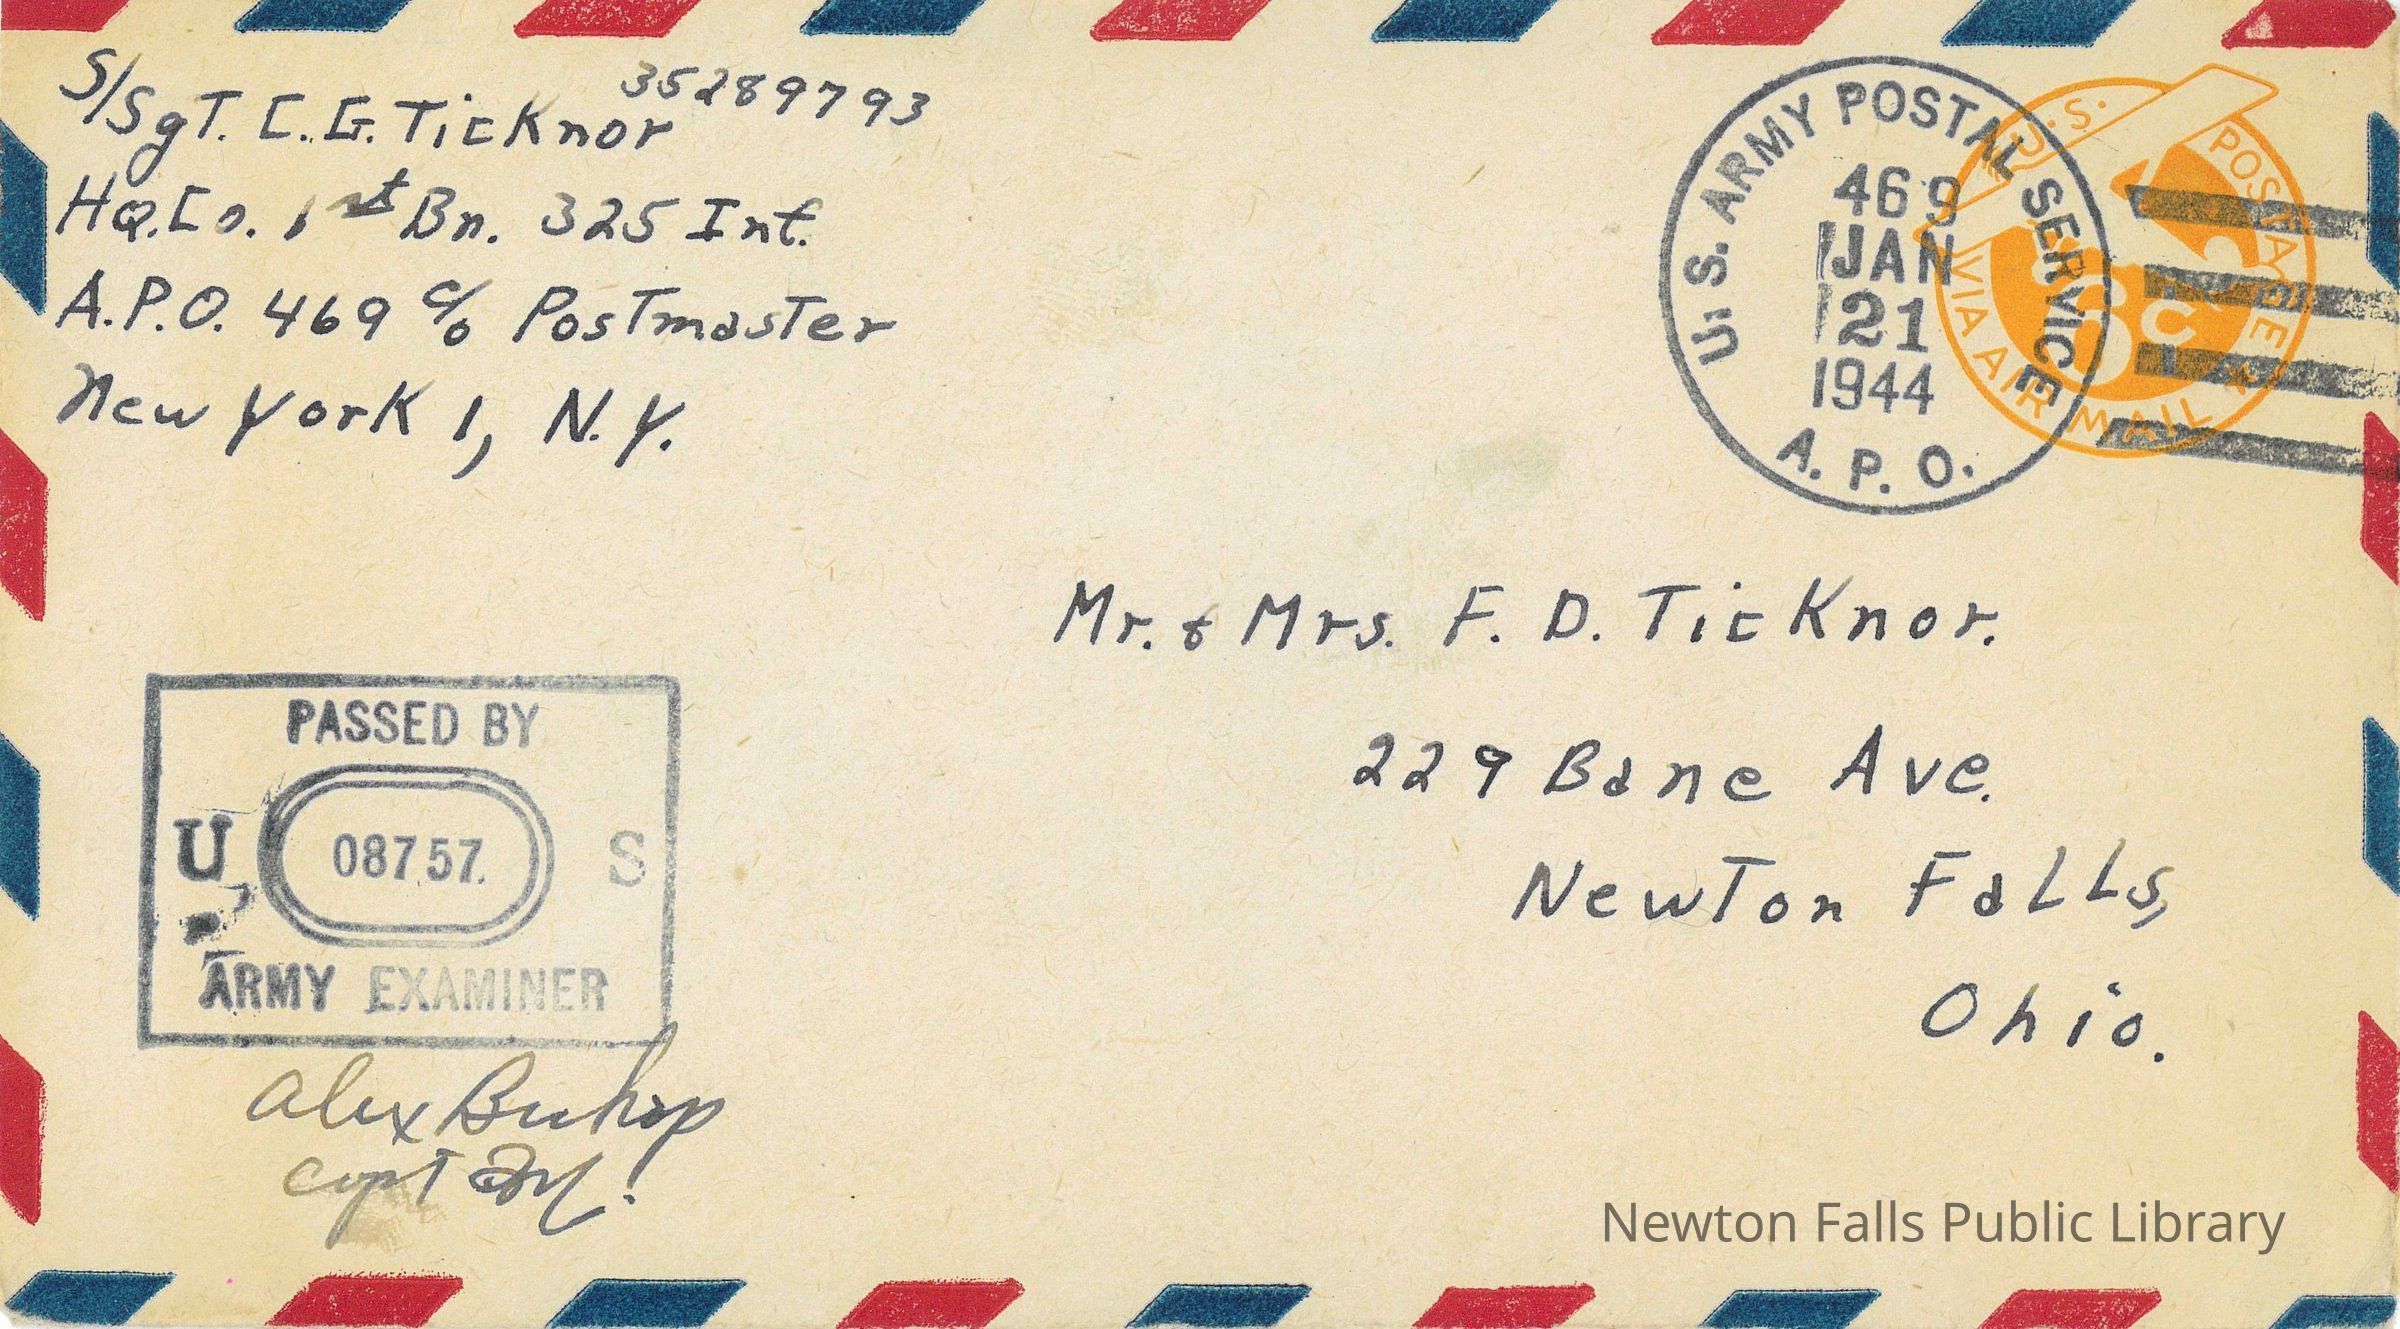 S/SgT. C. G. Ticknor 35289793
Hq. Co. 1st Bn. 325 Inf.
A.P.O. 469 c/o Postmaster
New York 1, N.Y.
U.S. ARMY POSTAL SERVICE
469
JAN
21
1944
A. P. O.
U.S. POSTAGE
6c
VIA AIR MAIL
Mr. & Mrs. F. D. Ticknor.
229 Bane Ave.
Newton Falls,
Ohio.
PASSED BY
U 08757 S
ARMY EXAMINER
Alex Bishop
Capt
Newton Falls Public Library